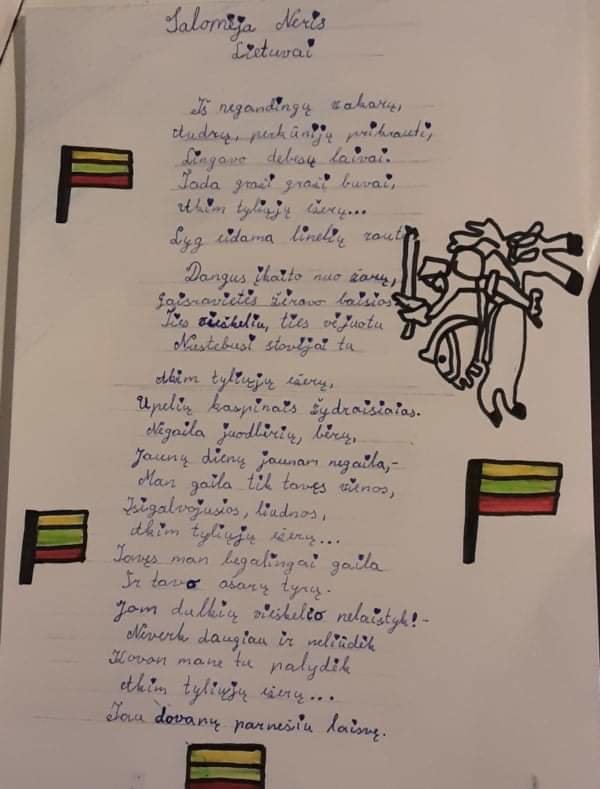 Salomėja Nėris
Lietuvai
Iš negandingų vakarų,
Audrų, perkūnijų prikrauti,
Lingavo debesų laivai.
Tada graži graži buvai,
Akim tyliųjų ežerų...
Lyg eidama linelių rauti
Dangus įkaito nuo žarų,
Gaisravietės žėravo baisios
Ties vieškeliu, ties vėjuotu
Nustebusi stovėjai tu
Akim tyliųjų ežerų,
Upelių kaspinais žydraisiaias.
Negaila juodbėrių, bėrų,
Jaunų dienų jaunam negaila,-
Man gaila tik tavęs vienos,
Įsigalvojusios, liūdnos,
Akim tyliųjų ežerų...
Tavęs man begalingai gaila
Ir tavo ašarų tyrų.
Jom dulkių vieškelio nelaistyk!-
Neverk daugiau ir neliūdėk
Kovon mane tu palydėk
Akim tyliųjų ežerų...
Tau dovanų parnešiu laisvę.